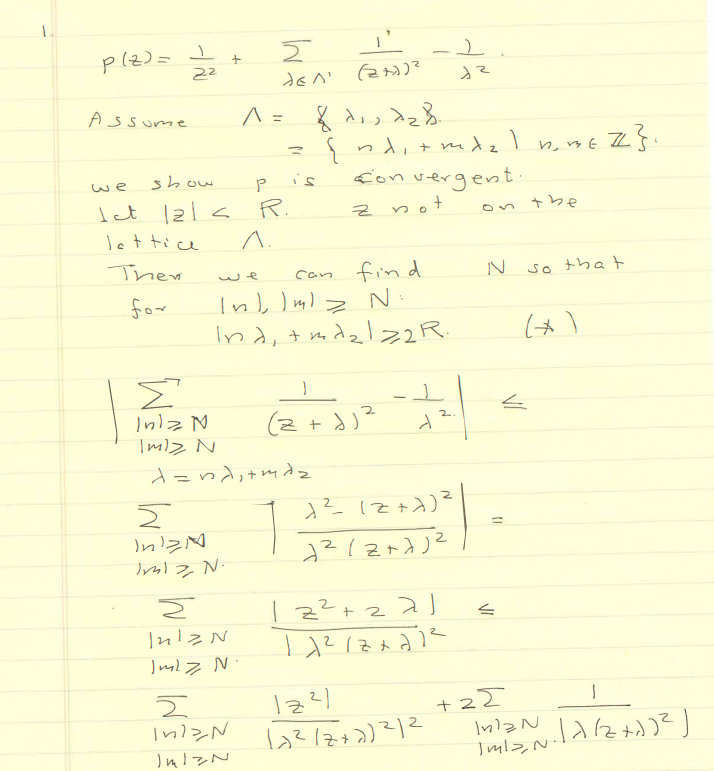 1.
p(z) = 1/z² + Σ_{λ∈Λ'} 1/(z+λ)² - 1/λ².
Assume Λ = {λ₁, λ₂}.
= { nλ₁ + mλ₂ | n, m ∈ ℤ}.
we show p is convergent.
let |z| < R. z not on the
lattice Λ.
Then we can find N so that
for |n|, |m| ≥ N:
|nλ₁ + mλ₂| ≥ 2R. (*)
| Σ_{|n|≥N, |m|≥N, λ=nλ₁+mλ₂} 1/(z+λ)² - 1/λ² | ≤
Σ_{|n|≥N, |m|≥N.} | λ² - (z+λ)² / λ²(z+λ)² | =
Σ_{|n|≥N, |m|≥N.} |z² + 2λ| / |λ²(z+λ)² ≤
Σ_{|n|≥N, |m|≥N} |z²| / |λ²(z+λ)²|² + 2Σ_{|n|≥N, |m|≥N.} 1/|λ(z+λ)²|